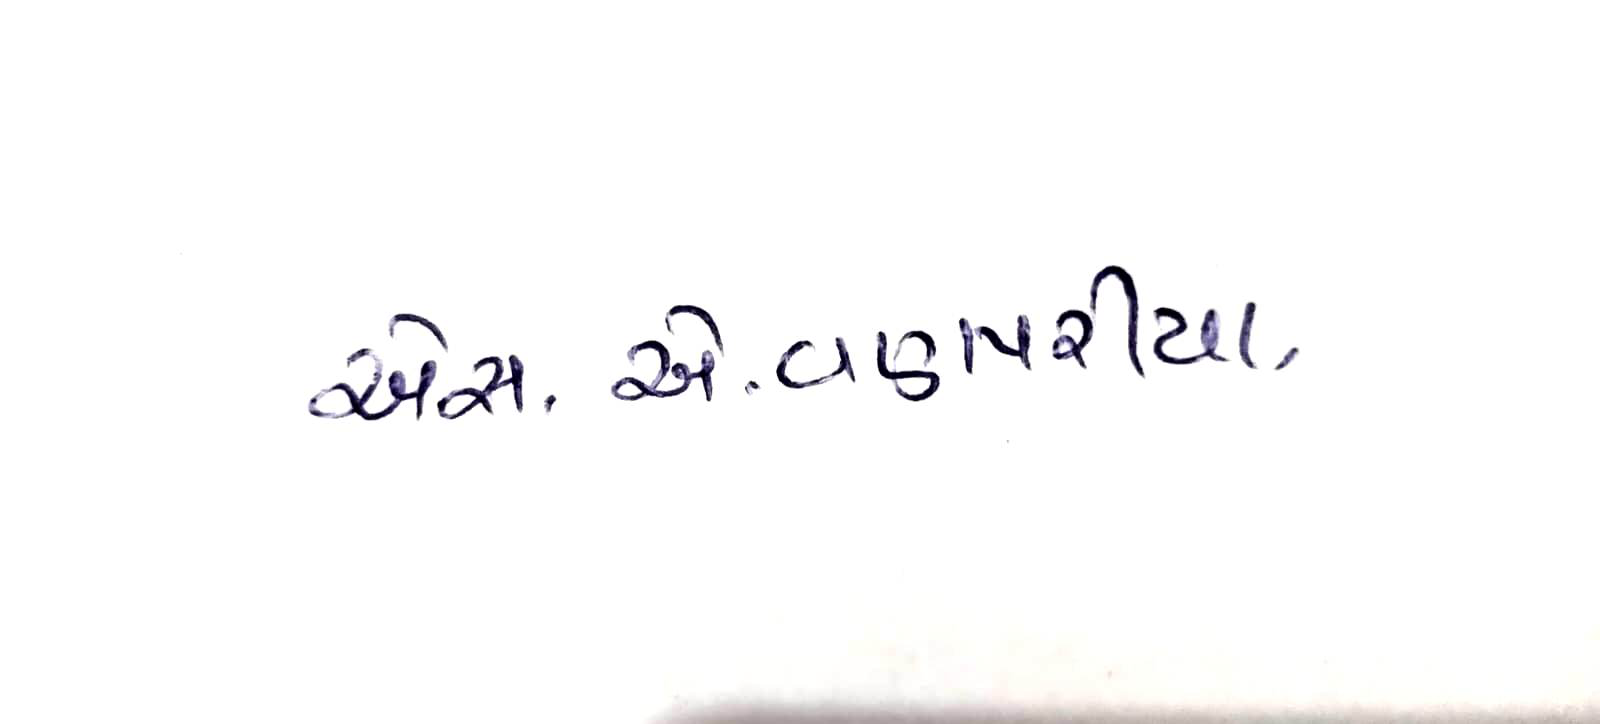 એસ. એ. વણપરીયા.